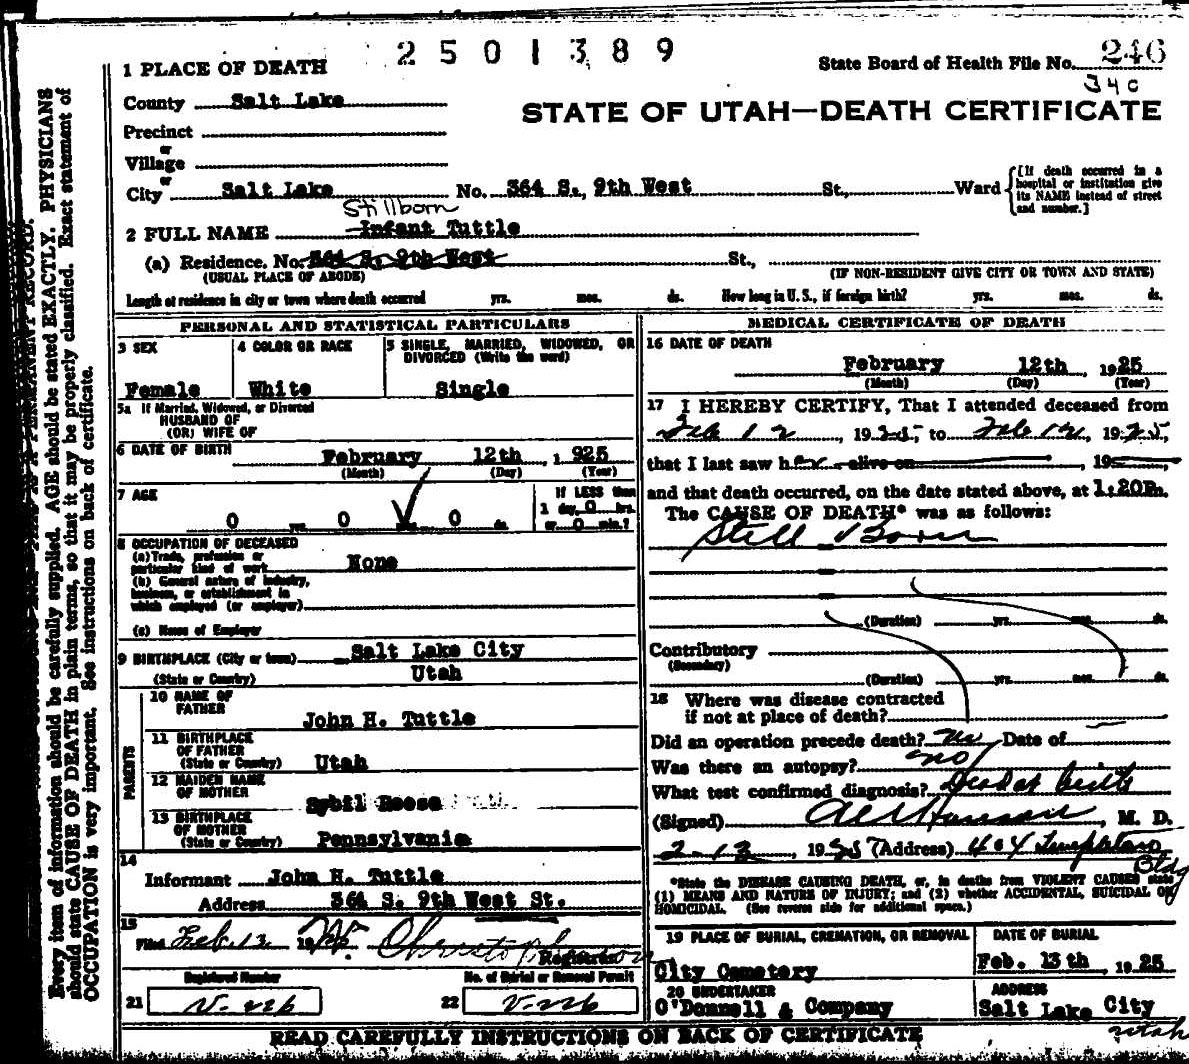 2501389
1 PLACE OF DEATH
State Board of Health File No. 246
340
County Salt Lake
STATE OF UTAH—DEATH CERTIFICATE
Precinct
or
Village
or
City Salt Lake No. 364 S., 9th West St., Ward
[If death occurred in a hospital or institution give its NAME instead of street and number.]
Stillborn
2 FULL NAME Infant Tuttle
(a) Residence. No. 364 S. 9th West St.,
(USUAL PLACE OF ABODE) (IF NON-RESIDENT GIVE CITY OR TOWN AND STATE)
Length of residence in city or town where death occurred yrs. mos. ds. How long in U. S., if foreign birth? yrs. mos. ds.
PERSONAL AND STATISTICAL PARTICULARS
3 SEX
Female
4 COLOR OR RACE
White
5 SINGLE, MARRIED, WIDOWED, OR
DIVORCED (Write the word)
Single
5a If Married, Widowed, or Divorced
HUSBAND OF
(OR) WIFE OF
6 DATE OF BIRTH
February 12th, 1925
(Month) (Day) (Year)
7 AGE
0 yrs. 0 mos. 0 ds.
If LESS than
1 day, 0 hrs.
or 0 min.?
8 OCCUPATION OF DECEASED
(a) Trade, profession or
particular kind of work None
(b) General nature of industry,
business, or establishment in
which employed (or employer)
(c) Name of Employer
9 BIRTHPLACE (City or town) Salt Lake City
(State or Country) Utah
PARENTS
10 NAME OF
FATHER
John H. Tuttle
11 BIRTHPLACE
OF FATHER
(State or Country) Utah
12 MAIDEN NAME
OF MOTHER
Sybil Reese
13 BIRTHPLACE
OF MOTHER
(State or Country) Pennsylvania
14
Informant John H. Tuttle
Address 364 S. 9th West St.
15
Filed Feb. 12 19 Christopherson
Registrar
Registered Number No. of Burial or Removal Permit
21 V-226 22 V-226
MEDICAL CERTIFICATE OF DEATH
16 DATE OF DEATH
February 12th, 1925
(Month) (Day) (Year)
17 I HEREBY CERTIFY, That I attended deceased from
Feb 12, 1925, to Feb 12, 1925,
that I last saw her alive on , 19
and that death occurred, on the date stated above, at 1:20 P m.
The CAUSE OF DEATH* was as follows:
Still Born
(Duration) yrs. mos. ds.
Contributory
(Secondary)
(Duration) yrs. mos. ds.
18 Where was disease contracted
if not at place of death?
Did an operation precede death? no Date of
Was there an autopsy? no
What test confirmed diagnosis? Dead at birth
(Signed) , M. D.
2-13, 1925 (Address) 404 Templeton
Bldg
*State the DISEASE CAUSING DEATH, or, in deaths from VIOLENT CAUSES state
(1) MEANS AND NATURE OF INJURY; and (2) whether ACCIDENTAL, SUICIDAL OR
HOMICIDAL. (See reverse side for additional space.)
19 PLACE OF BURIAL, CREMATION, OR REMOVAL
City Cemetery
DATE OF BURIAL
Feb. 13th, 1925
20 UNDERTAKER
O'Donnell & Company
ADDRESS
Salt Lake City
Utah
READ CAREFULLY INSTRUCTIONS ON BACK OF CERTIFICATE
Every item of information should be carefully supplied. AGE should be stated EXACTLY. PHYSICIANS
should state CAUSE OF DEATH in plain terms, so that it may be properly classified. Exact statement of
OCCUPATION is very important. See instructions on back of certificate.